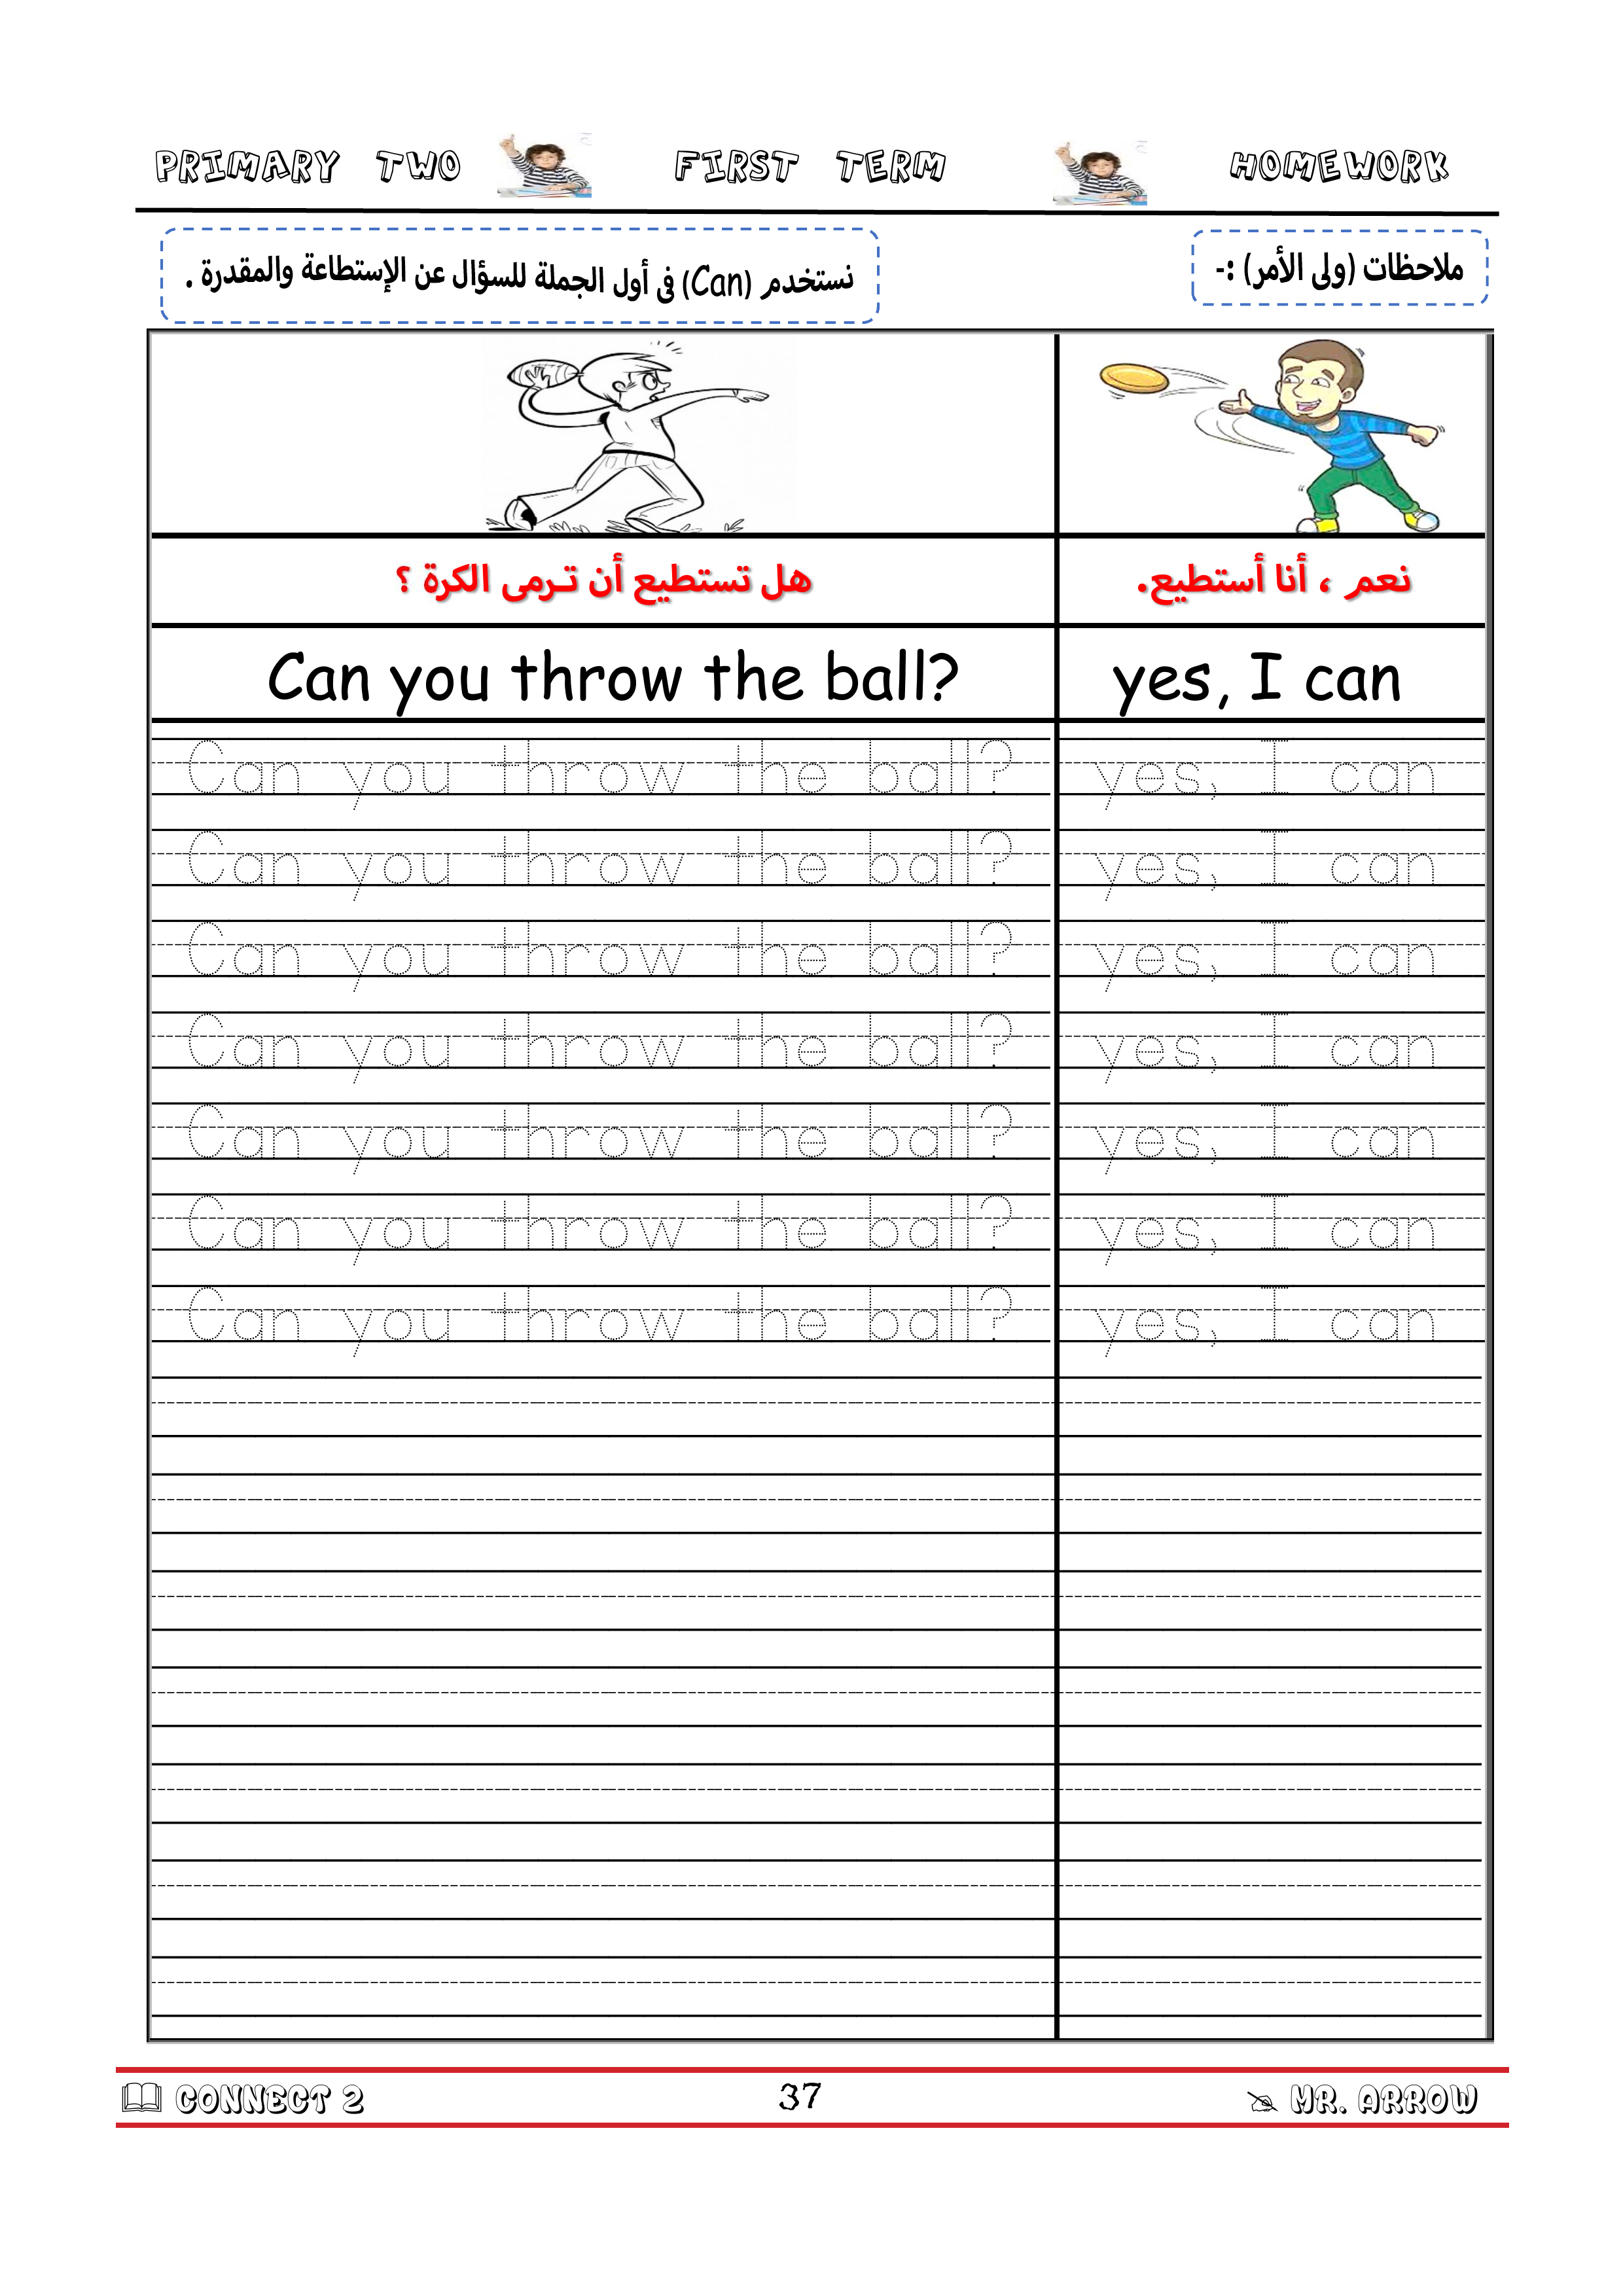 PRIMARY TWO FIRST TERM HOMEWORK
ملاحظات (ولى الأمر) :-
نستخدم (Can) فى أول الجملة للسؤال عن الإستطاعة والمقدرة .
هل تستطيع أن تـرمى الكرة ؟ نعم ، أنا أستطيع.
Can you throw the ball? yes, I can
Can you throw the ball? yes, I can
Can you throw the ball? yes, I can
Can you throw the ball? yes, I can
Can you throw the ball? yes, I can
Can you throw the ball? yes, I can
Can you throw the ball? yes, I can
Can you throw the ball? yes, I can
CONNECT 2 37 MR. ARROW